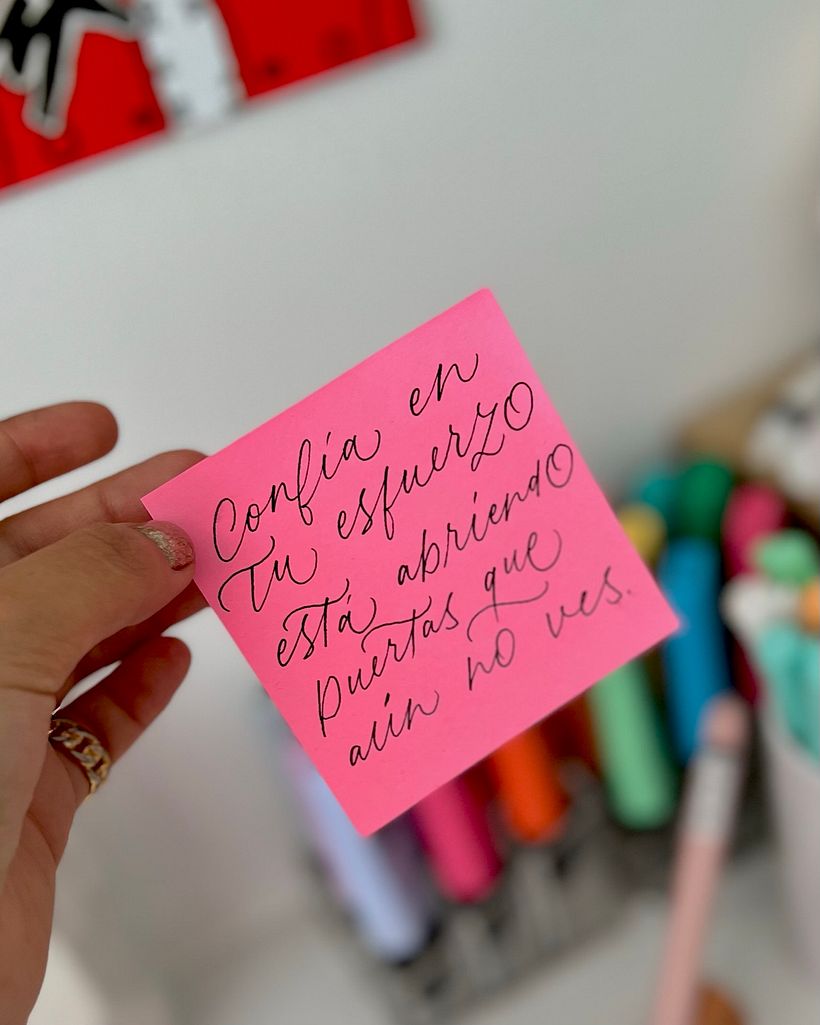 Confía en
Tu esfuerzo
está abriendo
puertas que
aún no ves.